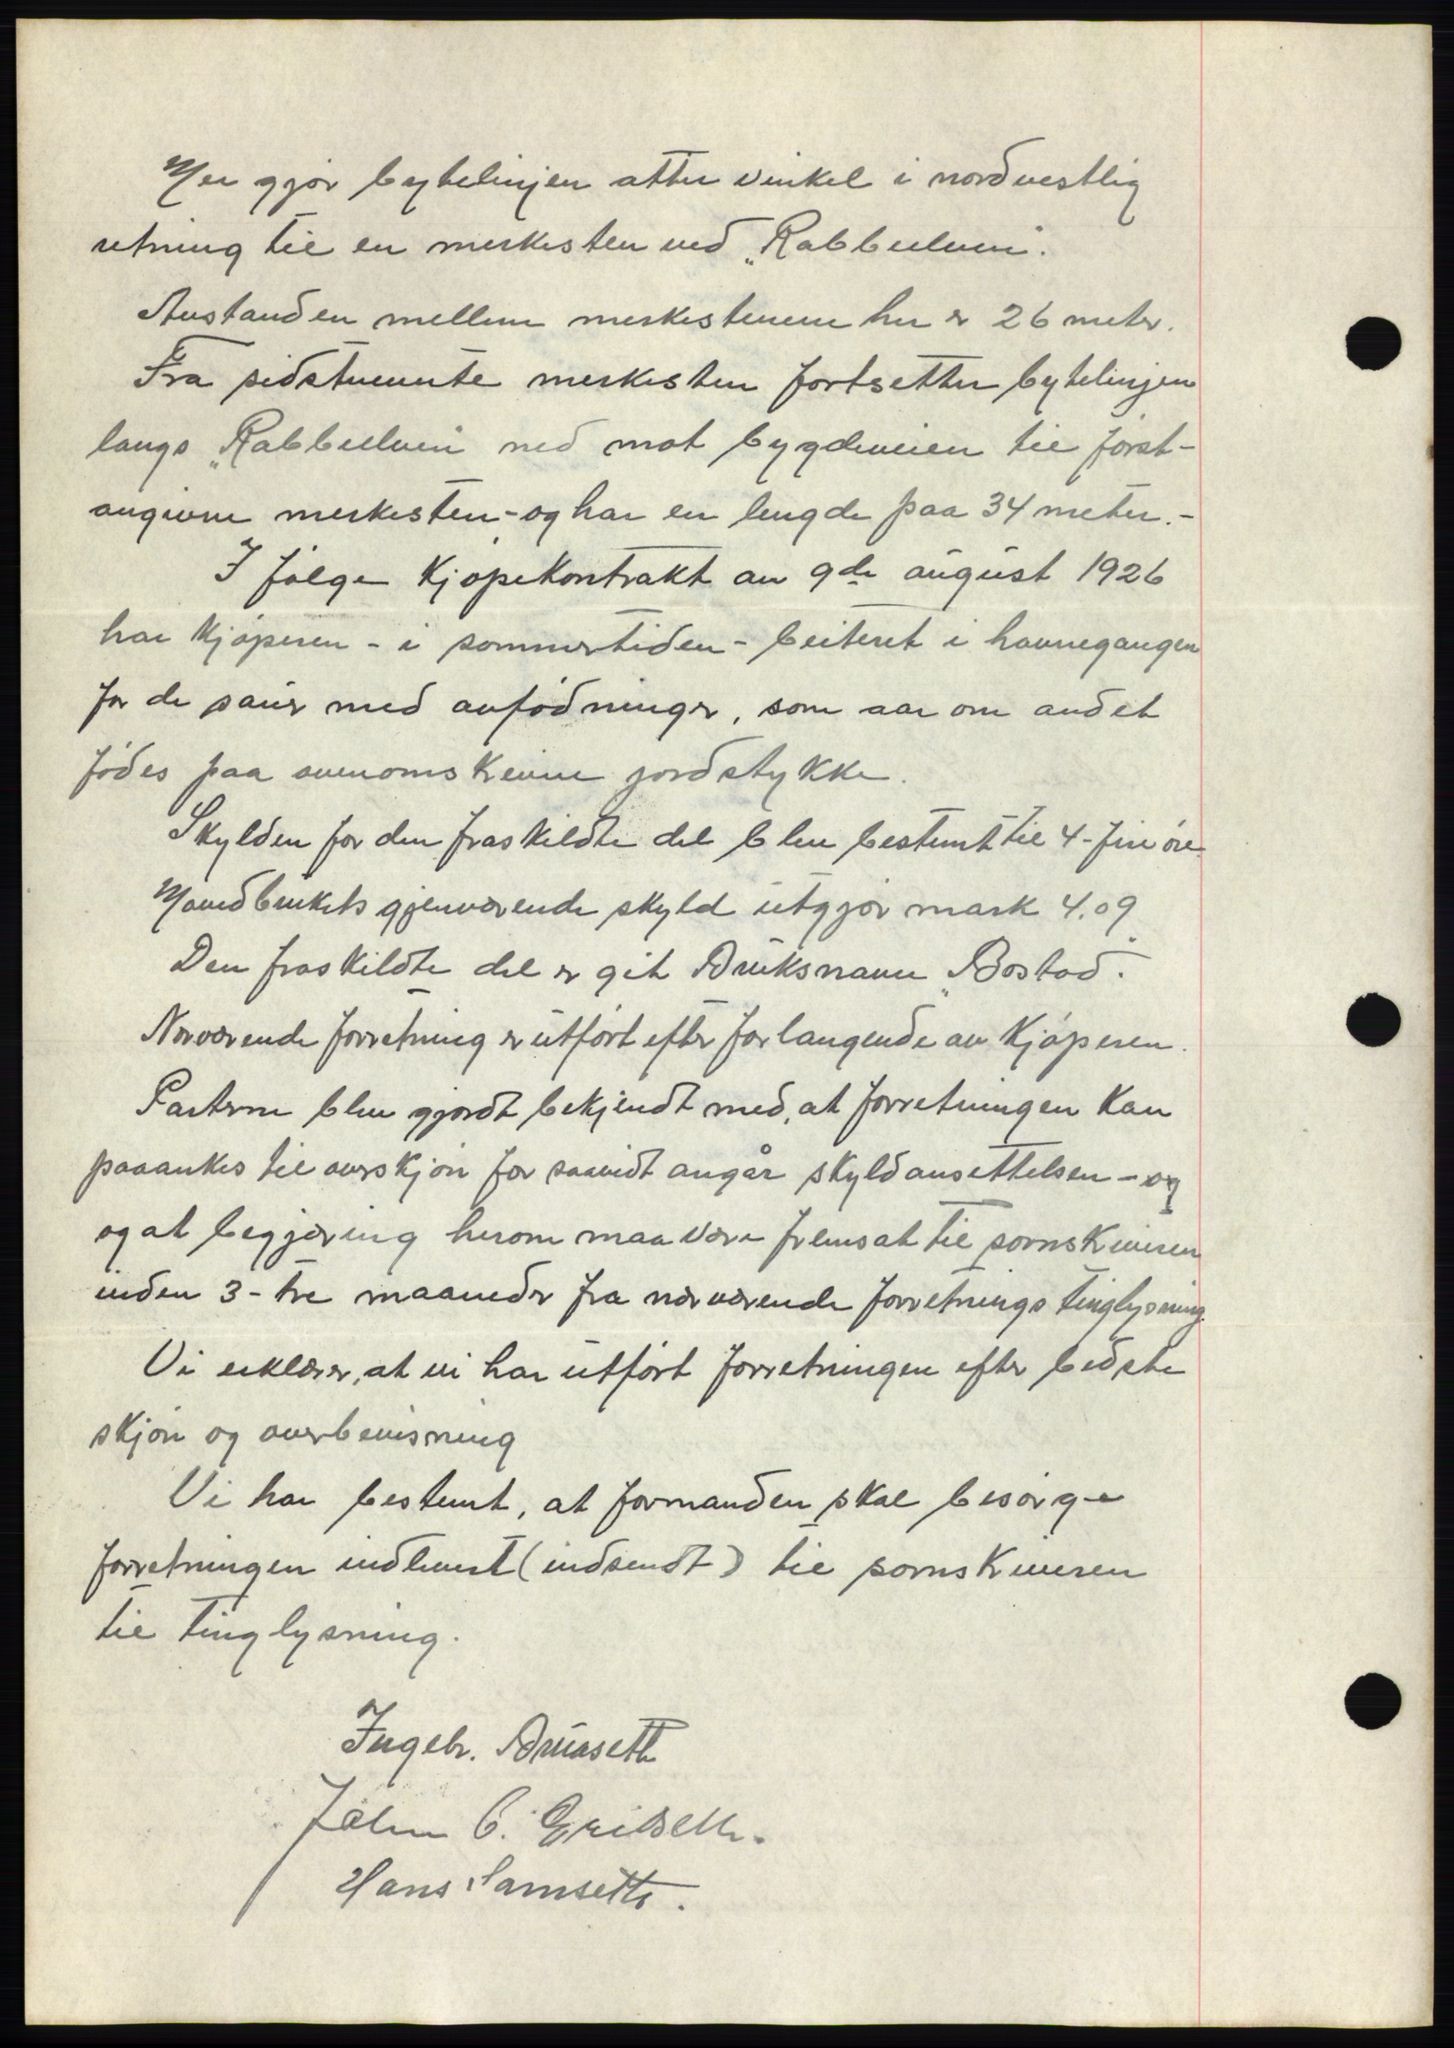 Her gjør bytelinjen atter vinkel i nordvestlig
retning til en merkesten ved „Rabbeelven".
Avstanden mellem merkestenene her er 26 meter.
Fra sidstnevnte merkesten fortsetter bytelinjen
langs „Rabbeelven" ned mot bygdeveien til først-
angivne merkesten,- og har en lengde paa 34 meter.-
I følge Kjøpekontrakt av 9de august 1926
har Kjøperen - i sommertiden - beiteret i havnegangen
for de sauer med avfødninger, som aar om andet
fødes paa ovenomskrevne jordstykke.
Skylden for den fraskildte del blev bestemt til 4 - fire øre
Hovedbrukets gjenværende skyld utgjør mark 4.09
Den fraskildte del er git Bruksnavn „Bostad".
Nærværende forretning er utført efter forlangende av Kjøperen.
Parterne blev gjordt bekjendt med, at forretningen kan
paaankes til overskjøn for saavidt angår skyldansettelsen - og
og at begjæring herom maa være fremsat til sorenskriveren
inden 3 - tre maaneder fra nærværende forretnings tinglysning.
Vi erklærer, at vi har utført forretningen efter bedste
skjøn og overbevisning
Vi har bestemt, at formanden skal besørge
forretningen indlevert (indsendt) til sorenskriveren
til tinglysning.
Ingebr. Bruaseth
John C. Eriksetth.
Hans Samseth.